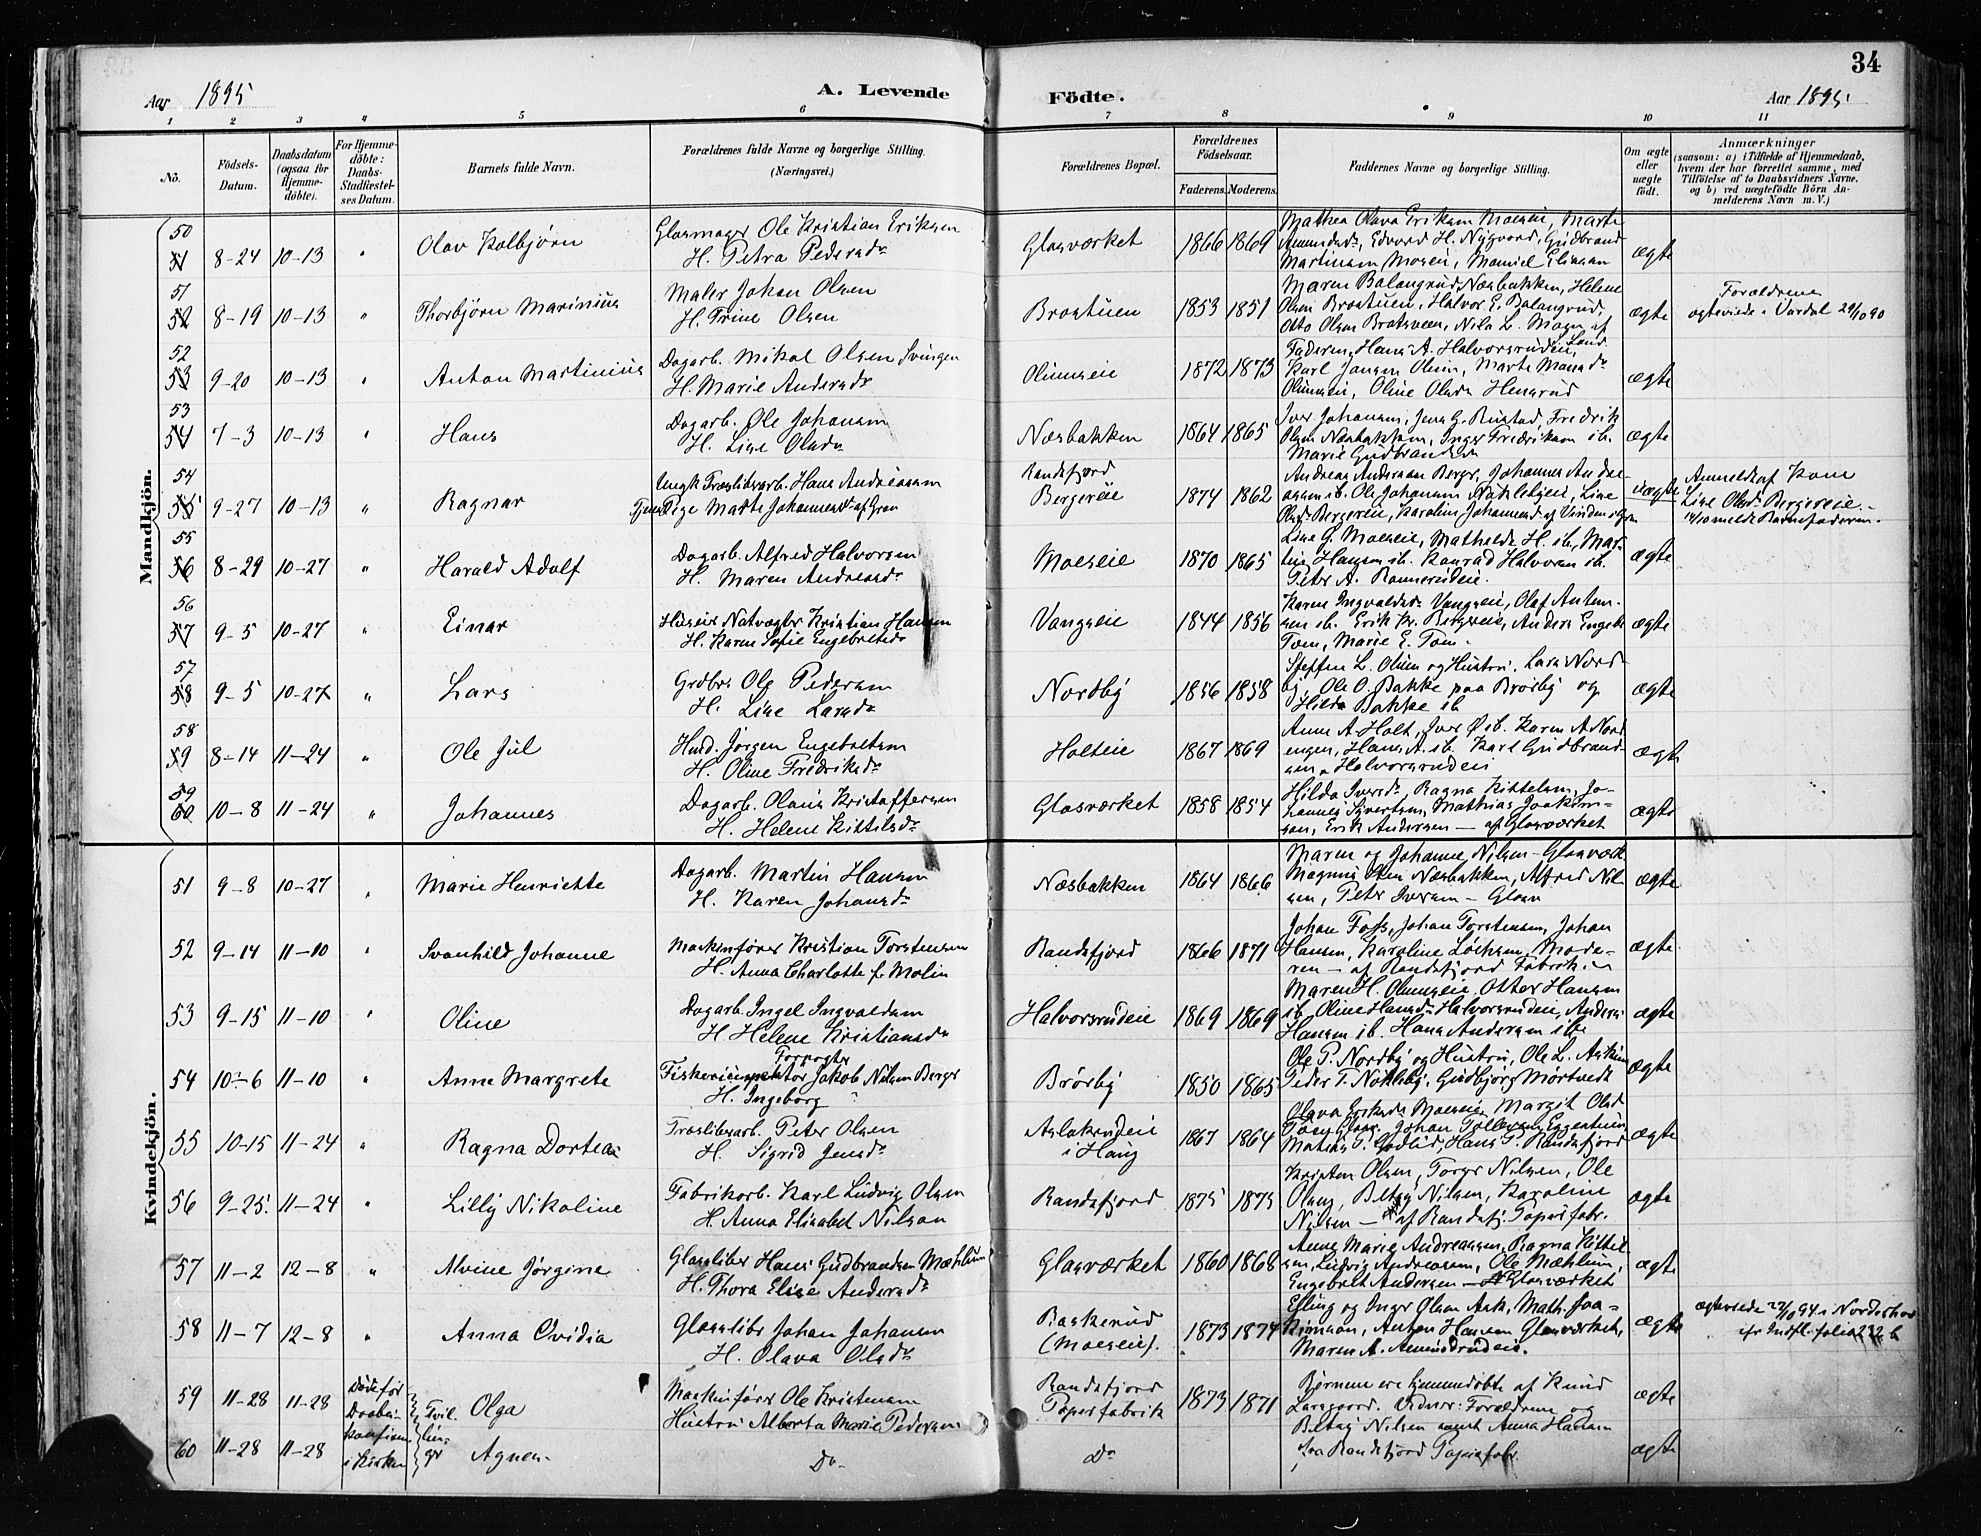 34
Aar 1895 A. Levende Födte. Aar 1895
1 2 3 4 5 6 7 8 9 10 11
No.
Födsels-Datum.
Daabsdatum (ogsaa for Hjemme-döbte).
For Hjemme-döbte: Daabs-Stadfæstel-ses Datum.
Barnets fulde Navn.
Forældrenes fulde Navne og borgerlige Stilling. (Næringsvei.)
Forældrenes Bopæl.
Forældrenes Födselsaar.
Faderens. Moderens.
Faddernes Navne og borgerlige Stilling.
Om ægte eller uægte födt.
Anmærkninger
(saasom: a) i Tilfælde af Hjemmedaab, hvem der har forrettet samme, med Tilföielse af to Daabsvidners Navne. og b) ved uægtefödte Börn Anmelderens Navn m. V.)
Mandkjön.
50 51 8-24 10-13 " Olav Kolbjørn
Glasmager Ole Kristian Eriksen
H. Petra Pedersdr
Glasværket 1866 1869
Mathea Olava Eriksen Moeseie, Marte
Amundsdr, Edvard H. Nygaard, Gudbrand
Martinsen Moseie, Manuel Eliassen
ægte
51 52 8-19 10-13 " Thorbjørn Marinius
Maler Johan Olsen
H. Trine Olsen
Brostuen 1853 1851
Maren Balangrud Næsbakken, Helene
Olsen Brostuen, Halvor E. Balangrud,
Otto Olsen Bratsveen, Nils L. Moen af
Land
ægte
Forældrene
ægteviede i Vardal 29/10 90
52 53 9-20 10-13 " Anton Martinius
Dagarb. Mikal Olsen Svingen
H. Marie Andersdr
Olimseie 1872 1873
Faderen, Hans A. Halvorsrudeie,
Karl Jansen Olim, Marte Monsdr
Olimseie, Oline Olsdr Hensrud
ægte
53 54 7-3 10-13 " Hans
Dagarb. Ole Johansen
H. Lise Olsdr
Næsbakken 1864 1865
Iver Johansen, Jens G. Rustad, Fredrik
Olsen Næsbakken, Inger Fredriksen ib.
Marie Gudbrandsen
ægte
54 55 9-27 10-13 " Ragnar
Ungk Træsliberarb. Hans Andreassen
Tjenestepige Marte Johannesdr af Gran
Randsfjord
Bergereie 1874 1862
Andreas Anderssen Berger, Johannes Andre-
assen ib. Ole Johansen Nøklebyeie, Lise
Olsdr Bergereie, Karoline Johannesd af Vinden i Gran
uægte
Anmeldt af Kone
Lise Olsdr Bergereie.
14/10 meldt Barnefaderen.
55 56 8-29 10-27 " Harald Adolf
Dagarb. Alfred Halvorsen
H. Maren Andreasdr
Moeseie 1870 1865
Lise G. Moeseie, Mathilde H. ib., Mar-
tin Hansen ib. Konrad Halvorsen ib.
Peter A. Rønnerudeie.
ægte
56 57 9-5 10-27 " Einar
Huseier Natvægter Kristian Hansen
H. Karen Sofie Engebretsdr
Vangseie 1844 1856
Karen Ingvaldsdr Vangseie, Olaf Anton-
sen ib. Erik Kr. Bergereie, Anders Engebr
Tom, Marie E. Tom.
ægte
57 58 9-5 10-27 " Lars
Grdbr. Ole Pedersen
H. Lise Larsdr
Nordby 1856 1858
Steffen L. Olim og Hustru, Lars Nord-
by, Ole O. Bakke paa Brørby og
Hilda Bakke ib
ægte
58 59 8-14 11-24 " Ole Jul
Husd. Jørgen Engebretsen
H. Oline Fredriksdr
Holteie 1867 1869
Anne A. Holt, Iver Ø ib. Karen A Nord
engen, Hans A. ib. Karl Gudbrand-
sen Halvorsrudeie
ægte
59 60 10-8 11-24 " Johannes
Dagarb. Olaus Kristoffersen
H. Helene Kittilsdr
Glasværket 1858 1854
Hilda Iversdr, Ragna Kittelsen, Jo-
hannes Syvertsen, Mathias Joakim-
sen, Erik Andersen — af Glasværket
ægte
Kvindekjön.
51 9-8 10-27 " Marie Henriette
Dagarb. Martin Hansen
H. Karen Johansdr
Næsbakken 1864 1866
Maren og Johanne Nilsen - Glasværk
Magnus Næsbakken, Alfred Nil-
sen, Peter Iversen — Glasv
ægte
52 9-14 11-10 " Svanhild Johanne
Maskinfører Kristian Torstensen
H. Anna Charlotte f. Molin
Randsfjord 1866 1871
Johan Foss, Johan Torstensen, Johan
Hansen, Karoline, Mode-
ren — af Randsfjord Fabrik
ægte
53 9-15 11-10 " Oline
Dagarb. Ingel Ingvaldsen
H Helene Kristiansdr
Halvorsrudeie 1869 1869
Maren H. Olimseie, Otter Hansen
ib. Oline Hansdr Halvorsrudeie, Anders
Hansen ib. Hans Andersen ibe
ægte
54 10-6 11-10 " Anne Margrete
Forvogter
Fiskeriinspektør Jakob Nilsen Berger
H. Ingeborg "
Brørby 1850 1865
Ole P. Nordby og Hustru, Ole L. Askim
Peder T. Nøkleby, Gudbjørg Mørtvedt
ægte
55 10-15 11-24 " Ragna Dortea
Træsliberarb. Peter Olsen
H. Sigrid Jensdr
Aslakrudeie
i Haug 1867 1864
Olava Eriksdr Moeseie, Margit Olsd
Johan Tollevsen Eggentun
Mathias P. Godlid, Hans P. Randsfjord
ægte
56 9-25. 11-24 " Lilly Nikoline
Fabrikarb. Karl Ludvig Olsen
H. Anna Elisabet Nilsen
Randsfjord 1875 1875
Kristen Olsen, Torger Nilsen, Ole
Olsen, Betsy Nilsen, Karoline
Nilsen — af Randsfj. Papirfabr.
ægte
57 11-2 12-8 " Alvine Jørgine
Glassliber Hans Gudbrandsen Mæhlum
H. Thora Elise Andersdr
Glasværket 1860 1868
Anne Marie Andreassen, Ragna Kittil-
sen, Ludvig Andreassen, Ole Mæhlum,
Engebret Andersen — Glasværket
ægte
58 11-7 12-8 " Anna Ovidia
Glasslibr Johan Johansen
H. Olava Olsdr
Baskerud
(Moeseie). 1873 1874
Elling og Inger Olsen Ask, Math. Joa-
kimsen, Anton Hansen Glasværket,
Maren A. Amundrudeie.
ægte
ægteviede 27/10 94 i Norderhov
cfr Indfl. folio 232 b
59 11-28 11-28 Døde før
Daabs-
konfirm
i Kirken
Tvil-
lin-
ger
Olga
Maskinfører Ole Kristensen
Hustru Alberta Marie Pedersen
Randsfjord
Papirfabrik 1873 1871
Børnene ere hjemmedøbte af Knud
Larsgaard. Vidner: Forældrene og
Betsy Nilsen samt Anna Hansen
fra Randsfjord Papirfabr.
ægte
60 11-28 11-28 Agnes.
Do Do
ægte